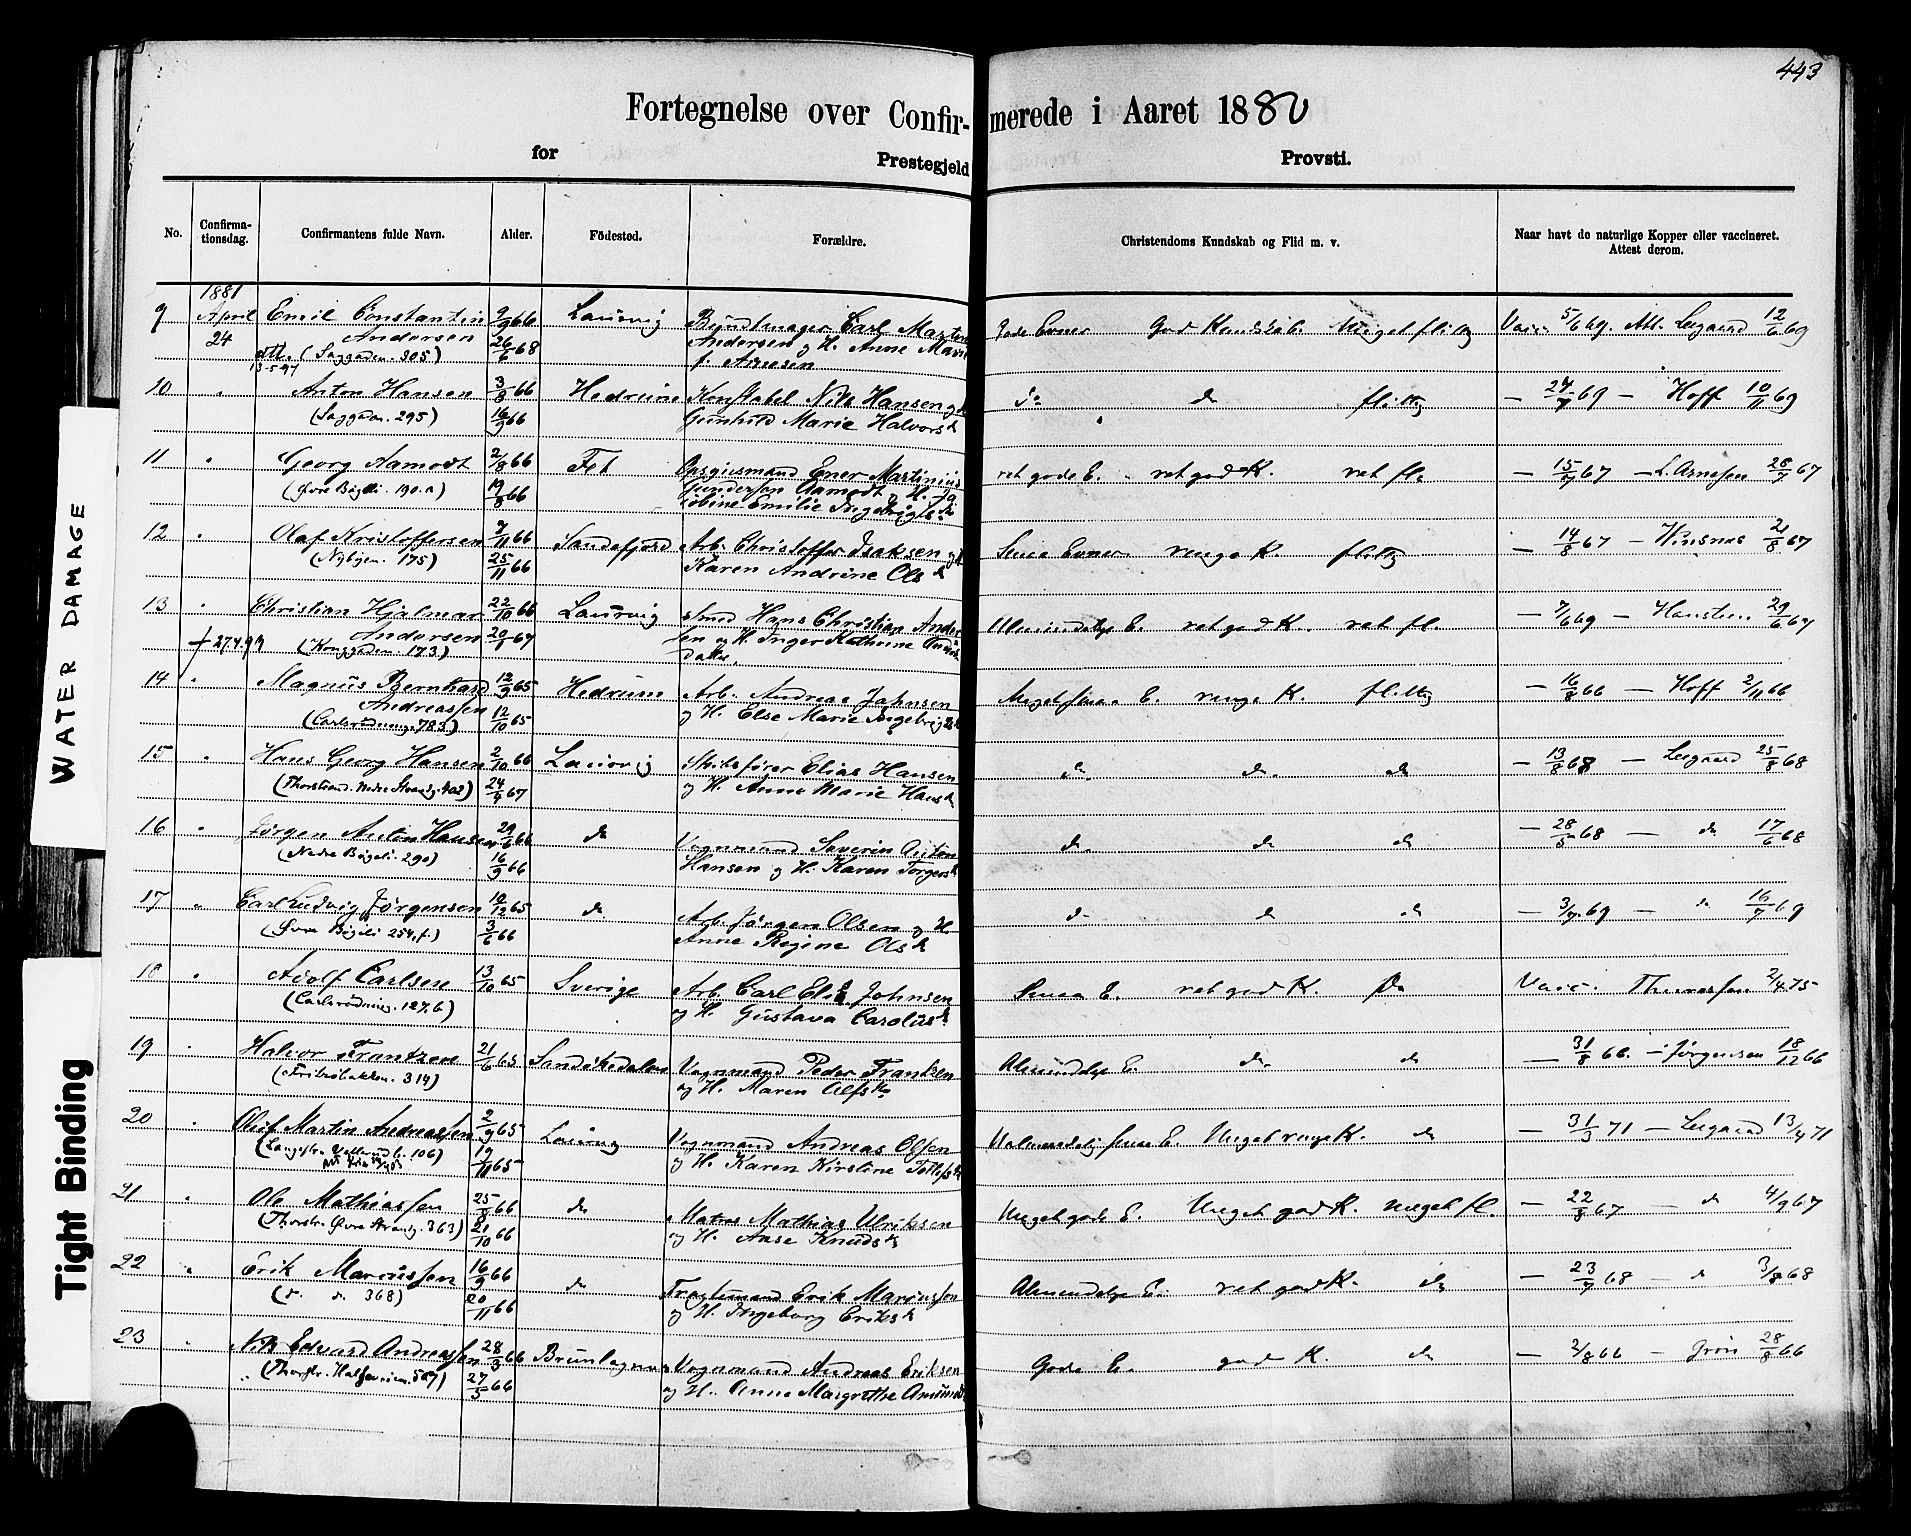 443
Fortegnelse over Confir- merede i Aaret 1880
for Prestegjeld Provsti.
No. Confirma- tionsdag. Confirmantens fulde Navn. Alder. Födested. Forældre. Christendoms Kundskab og Flid m. v. Naar havt de naturlige Kopper eller vaccineret. Attest derom.
1881
9 April Emil Constantin 2/9 66 Laurvig Carl Martin Gode Evner God Kundskab. Meget flittig Vacc. 5/6 69. Att. Leegaard 12/6 69
24 Andersen 26/6 68 Andersen og H. Anne Marie
att. (Laggaden. 305) f. Arnesen
13-5-97
10 " Anton Hansen 3/8 66 Hedrum Konstabel Nils Hansen og H. do do flittig — 27/7 69 — Hoff 10/11 69
(Laggaden. 295) 16/9 66 Gunhild Marie Halvorsd.
11 " Georg Aamodt 2/8 66 Fet Opsynsmand Ener Martinius ret gode E. ret god K. ret fl. — 15/7 67 — L. Arnesen 28/7 67
(Øvre Bøgeli. 190. a) 19/8 66 Gundersen Aamodt og H. Ja-
cobine Emilie Ingebrigtsd.
12 " Olaf Kristoffersen 7/11 66 Sandefjord Arb. Christoffer Isaksen og H. Smaa Evner ringe K. flittig — 14/8 67 — Winsnes 21/8 67
(Nybyen. 175) 25/11 66 Karen Andrine Olsd.
13 " Christian Hjalmar 22/10 66 Laurvig Smed Hans Christian Ander- Almindelige E. ret god K. ret fl. — 7/6 69 — 29/6 69
Andersen 20/1 67 sen og H. Inger Kathrine
† 27.4.99 (Konggaden. 173.) datter.
14 " Magnus Bernhard 12/9 65 Hedrum Arb. Andreas Jahnsen Meget smaa E. ringe K. flittig — 16/8 66 — Hoff 2/11 66
Andreassen 12/10 65 og H. Else Marie Ingebrigtsd.
(Carlsrødning. 783.)
15 " Hans Georg Hansen 2/10 66 Laurvig Skibsfører Elias Hansen do do do — 13/8 68 — Leegaard 25/8 68
(Thorstrand. Nedre Strandg. 402) 24/4 67 og H. Anne Marie Hansd.
16 " Jørgen Anton Hansen 29/6 66 do Vognmand Severin Anton do do do — 28/5 68 — do 17/6 68
(Nedre Bøgeli. 290) 16/9 66 Hansen og H. Karen Torgersd.
17 " Carl Ludvig Jørgensen 10/12 65 do Arb. Jørgen Olsen og H. do do do — 3/7 69 — do 16/7 69
(Øvre Bøgeli 254, f.) 3/6 66 Anne Regine Olsd.
18 " Adolf Carlsen 13/10 65 Sverige Arb. Carl Johnsen Smaa E. ret god K. do Vacc. 2/4 75
(Carlsrødning. 127. b) og H. Gustava Carolusd.
19 " Halvor Frantzen 21/6 65 Sandskedalen Vognmand Peder Frantzen Almindelige E. do do — 31/8 66. — Jørgensen 18/12 66
(Fribrobakken. 314) og H. Maren Alfsd.
20 " Oluf Martin Andreassen 2/9 65 Laurvig Vognmand Andreas Olsen Ualmindelig smaa E. Meget ringe K. do — 31/3 71 — Leegaard 13/4 71
(Langestr. 106) 19/11 65 og H. Karen Kirstine Tollefsd.
21 " Ole Mathiassen 25/8 66 do Matros Mathias Ulriksen Meget gode E. Meget god K. meget fl. — 22/8 67 — do 4/9 67
(Thorstr. Øvre Strandg. 363) 21/10 66 og H. Aase Knudsd.
22 " Erik Marcussen 16/9 66 do Fragtemand Erik Marcussen Almindelige E. ret god K. do — 23/7 68 — do 3/8 68
(do. do. 368) 20/11 66 og H. Ingeborg Eriksd.
23 " Nils Edvard Andreassen 28/3 66 Brunlagnæs Vognmand Andreas Eriksen Gode E. god K. do — 2/8 66 — Grøn 28/8 66
(Thorstr. 567) 27/5 66 og H. Anne Margrethe Amundsd.
WATER DAMAGE
Tight Binding